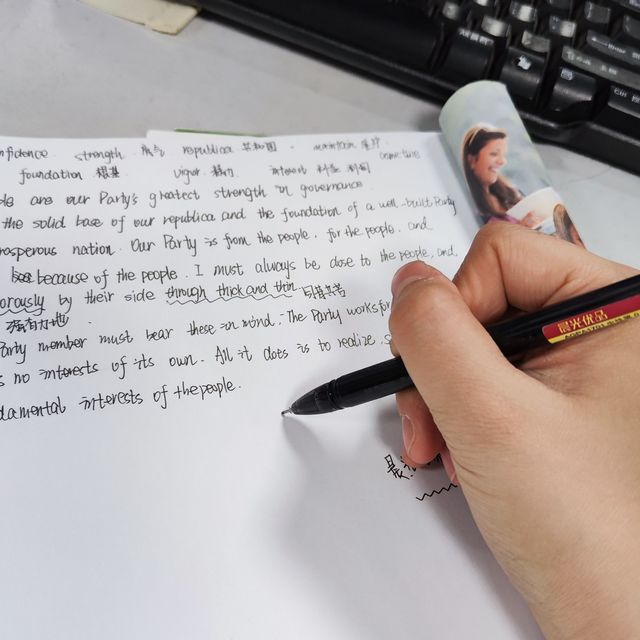 nfidence strength 底气 republica 共和国 maintain 维护
foundation 根基 vigor 精力 interest 利益
ple are our Party's greatest strength in governance
the solid base of our republica and the foundation of a well-built Party
rosperous nation. Our Party is from the people, for the people, and
because of the people. I must always be close to the people, and
orously by their side through thick and thin 同甘共苦
强有力地
Party member must bear these in mind. The Party works for
s no interests of its own. All it does is to realize, s
damental interests of the people.
晨光优品